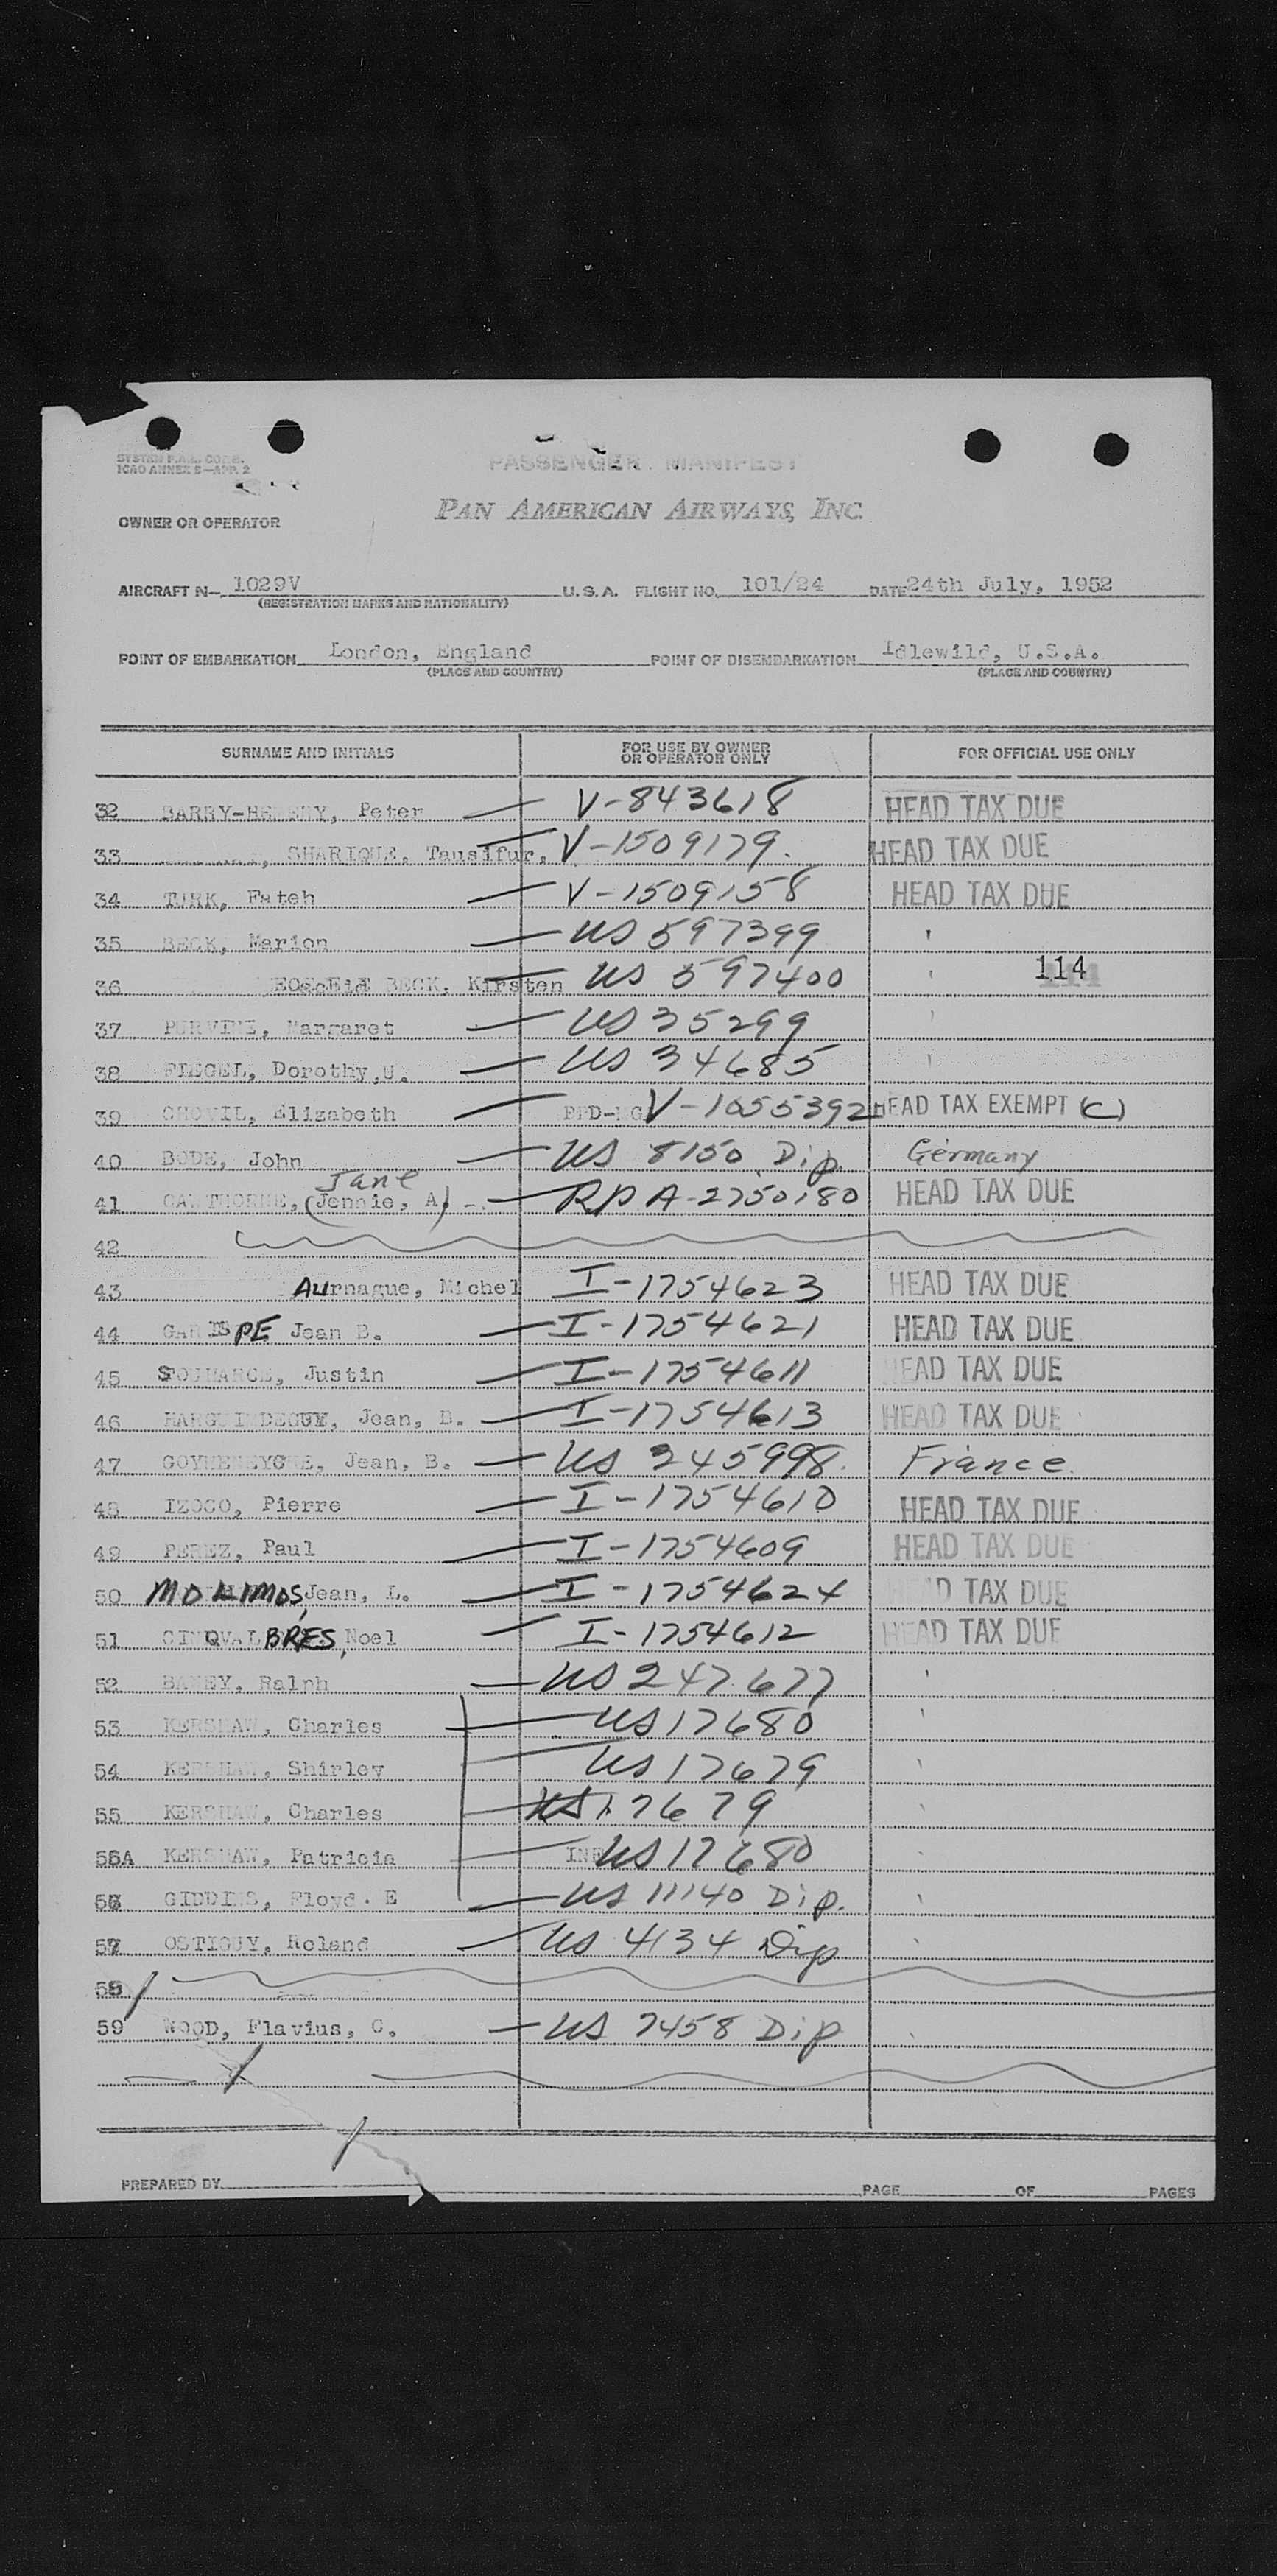 SYSTEM P.A.A. CORP.
ICAO ANNEX 9—APP. 2
PASSENGER MANIFEST
OWNER OR OPERATOR
PAN AMERICAN AIRWAYS, INC.
AIRCRAFT N— 1029V U.S.A. FLIGHT NO. 101/24 DATE 24th July, 1952
(REGISTRATION MARKS AND NATIONALITY)
POINT OF EMBARKATION London, England POINT OF DISEMBARKATION Idlewild, U.S.A.
(PLACE AND COUNTRY) (PLACE AND COUNTRY)
SURNAME AND INITIALS FOR USE BY OWNER OR OPERATOR ONLY FOR OFFICIAL USE ONLY
32 Peter — V-843618 HEAD TAX DUE
33 SHARIQUE, Tausifur, — V-1509179. HEAD TAX DUE
34 TURK, Fateh — V-1509158 HEAD TAX DUE
35 BECK, Marion — US 597399
36 BECK, Kirsten — US 597400 114
37 Margaret — US 35299
38 Dorothy, U. — US 34685
39 CHOVIL, Elizabeth — V-1055392 HEAD TAX EXEMPT (C)
40 BODE, John — US 8150 Dip. Germany
Jane
41 CAWTHORNE, (Jennie, A.) — RP A-2750180 HEAD TAX DUE
42
43 AUrnague, Michel I-1754623 HEAD TAX DUE
44 GARISPE Jean B. — I-1754621 HEAD TAX DUE
45 Justin — I-1754611 HEAD TAX DUE
46 HARGUINDEGUY, Jean, B. — I-1754613 HEAD TAX DUE
47 GOYHENEYCHE, Jean, B. — US 245998. France.
48 IZOCO, Pierre — I-1754610 HEAD TAX DUE
49 PEREZ, Paul — I-1754609 HEAD TAX DUE
50 Jean, L. — I-1754624 HEAD TAX DUE
51 CINQVALBRES, Noel — I-1754612 HEAD TAX DUE
52 Ralph — US 247677
53 KERSHAW, Charles — US 17680
54 KERSHAW, Shirley — US 17679
55 KERSHAW, Charles — US 17679
55A KERSHAW, Patricia — INF US 17680
56 GIDDINS, Floyd. E — US 11140 Dip.
57 OSTIGUY, Roland — US 4134 Dip
58
59 WOOD, Flavius, C. — US 7458 Dip
PREPARED BY PAGE OF PAGES